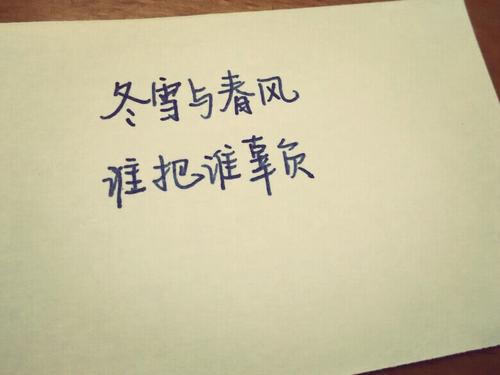 冬雪与春风
谁把谁辜负